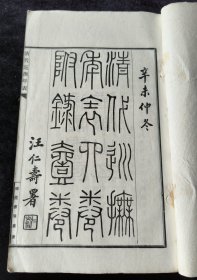 辛未仲冬
清代巡撫
年表六卷
附錄壹卷
汪仁壽署